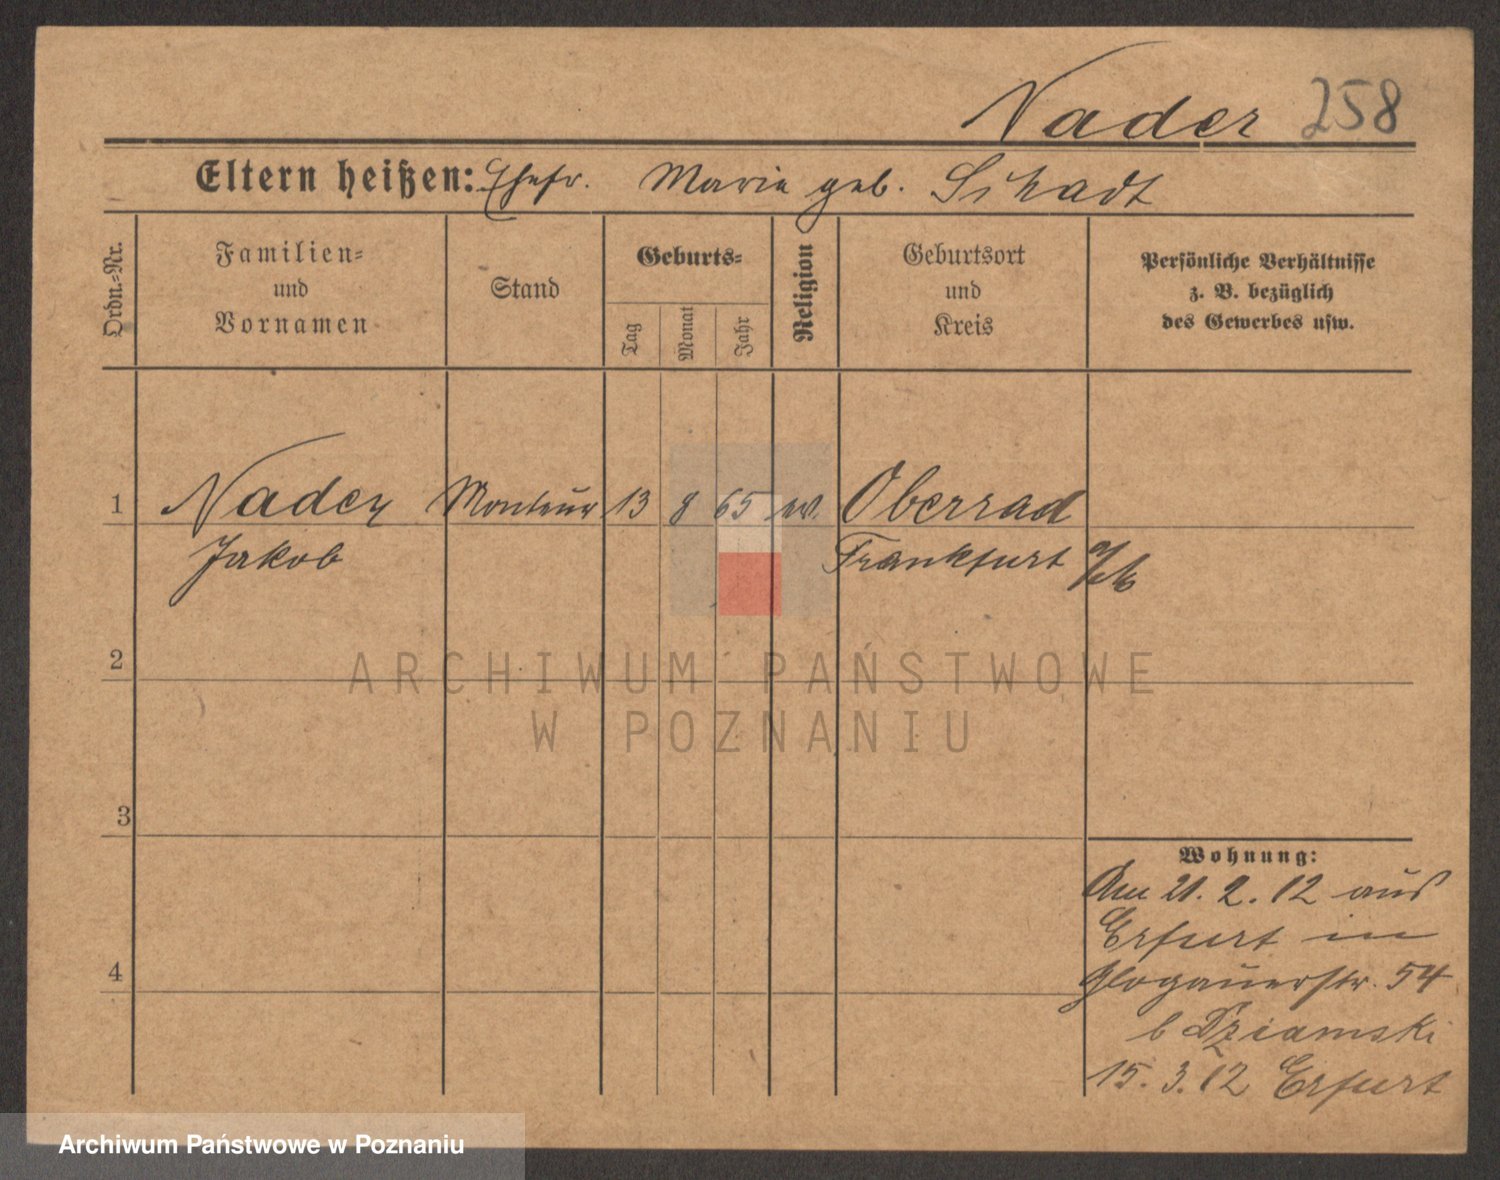 Nader 258
Eltern heißen: Ehefr. Marie geb. Schadt
Ordn.-Nr.
Familien-
und
Vornamen
Stand
Geburts-
Tag
Monat
Jahr
Religion
Geburtsort
und
Kreis
Persönliche Verhältnisse
z. B. bezüglich
des Gewerbes usw.
1 Nader Monteur 13 8 65 ev. Oberrad
Jakob Frankfurt a/M
2
ARCHIWUM PAŃSTWOWE
W POZNANIU
3
Wohnung:
Am 21. 2. 12 aus
Erfurt in
Glogauerstr. 54
4
b Dziamski
15. 3. 12 Erfurt
Archiwum Państwowe w Poznaniu